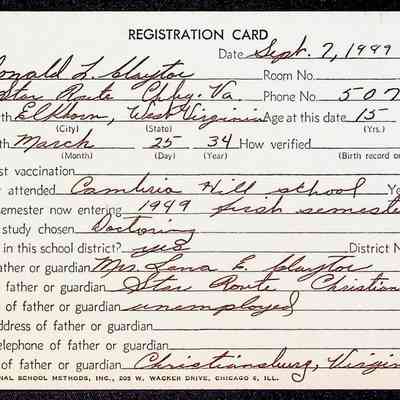 REGISTRATION CARD
Date Sept. 7, 1949
onald L. Claytor Room No.
Star Route Chbg. Va. Phone No. 507
th Elkhorn, West Virginia Age at this date 15
(City) (State) (Yrs.)
th March 25 34 How verified
(Month) (Day) (Year) (Birth record or
st vaccination
attended Cambria Hill school Ye
semester now entering 1949 first semeste
study chosen Doctoring
in this school district? yes District N
ather or guardian Mrs. Lena E. Claytor
father or guardian Star Route Christian
of father or guardian unemployed
address of father or guardian
elephone of father or guardian
of father or guardian Christiansburg, Virgin
NAL SCHOOL METHODS, INC., 205 W. WACKER DRIVE, CHICAGO 6, ILL.